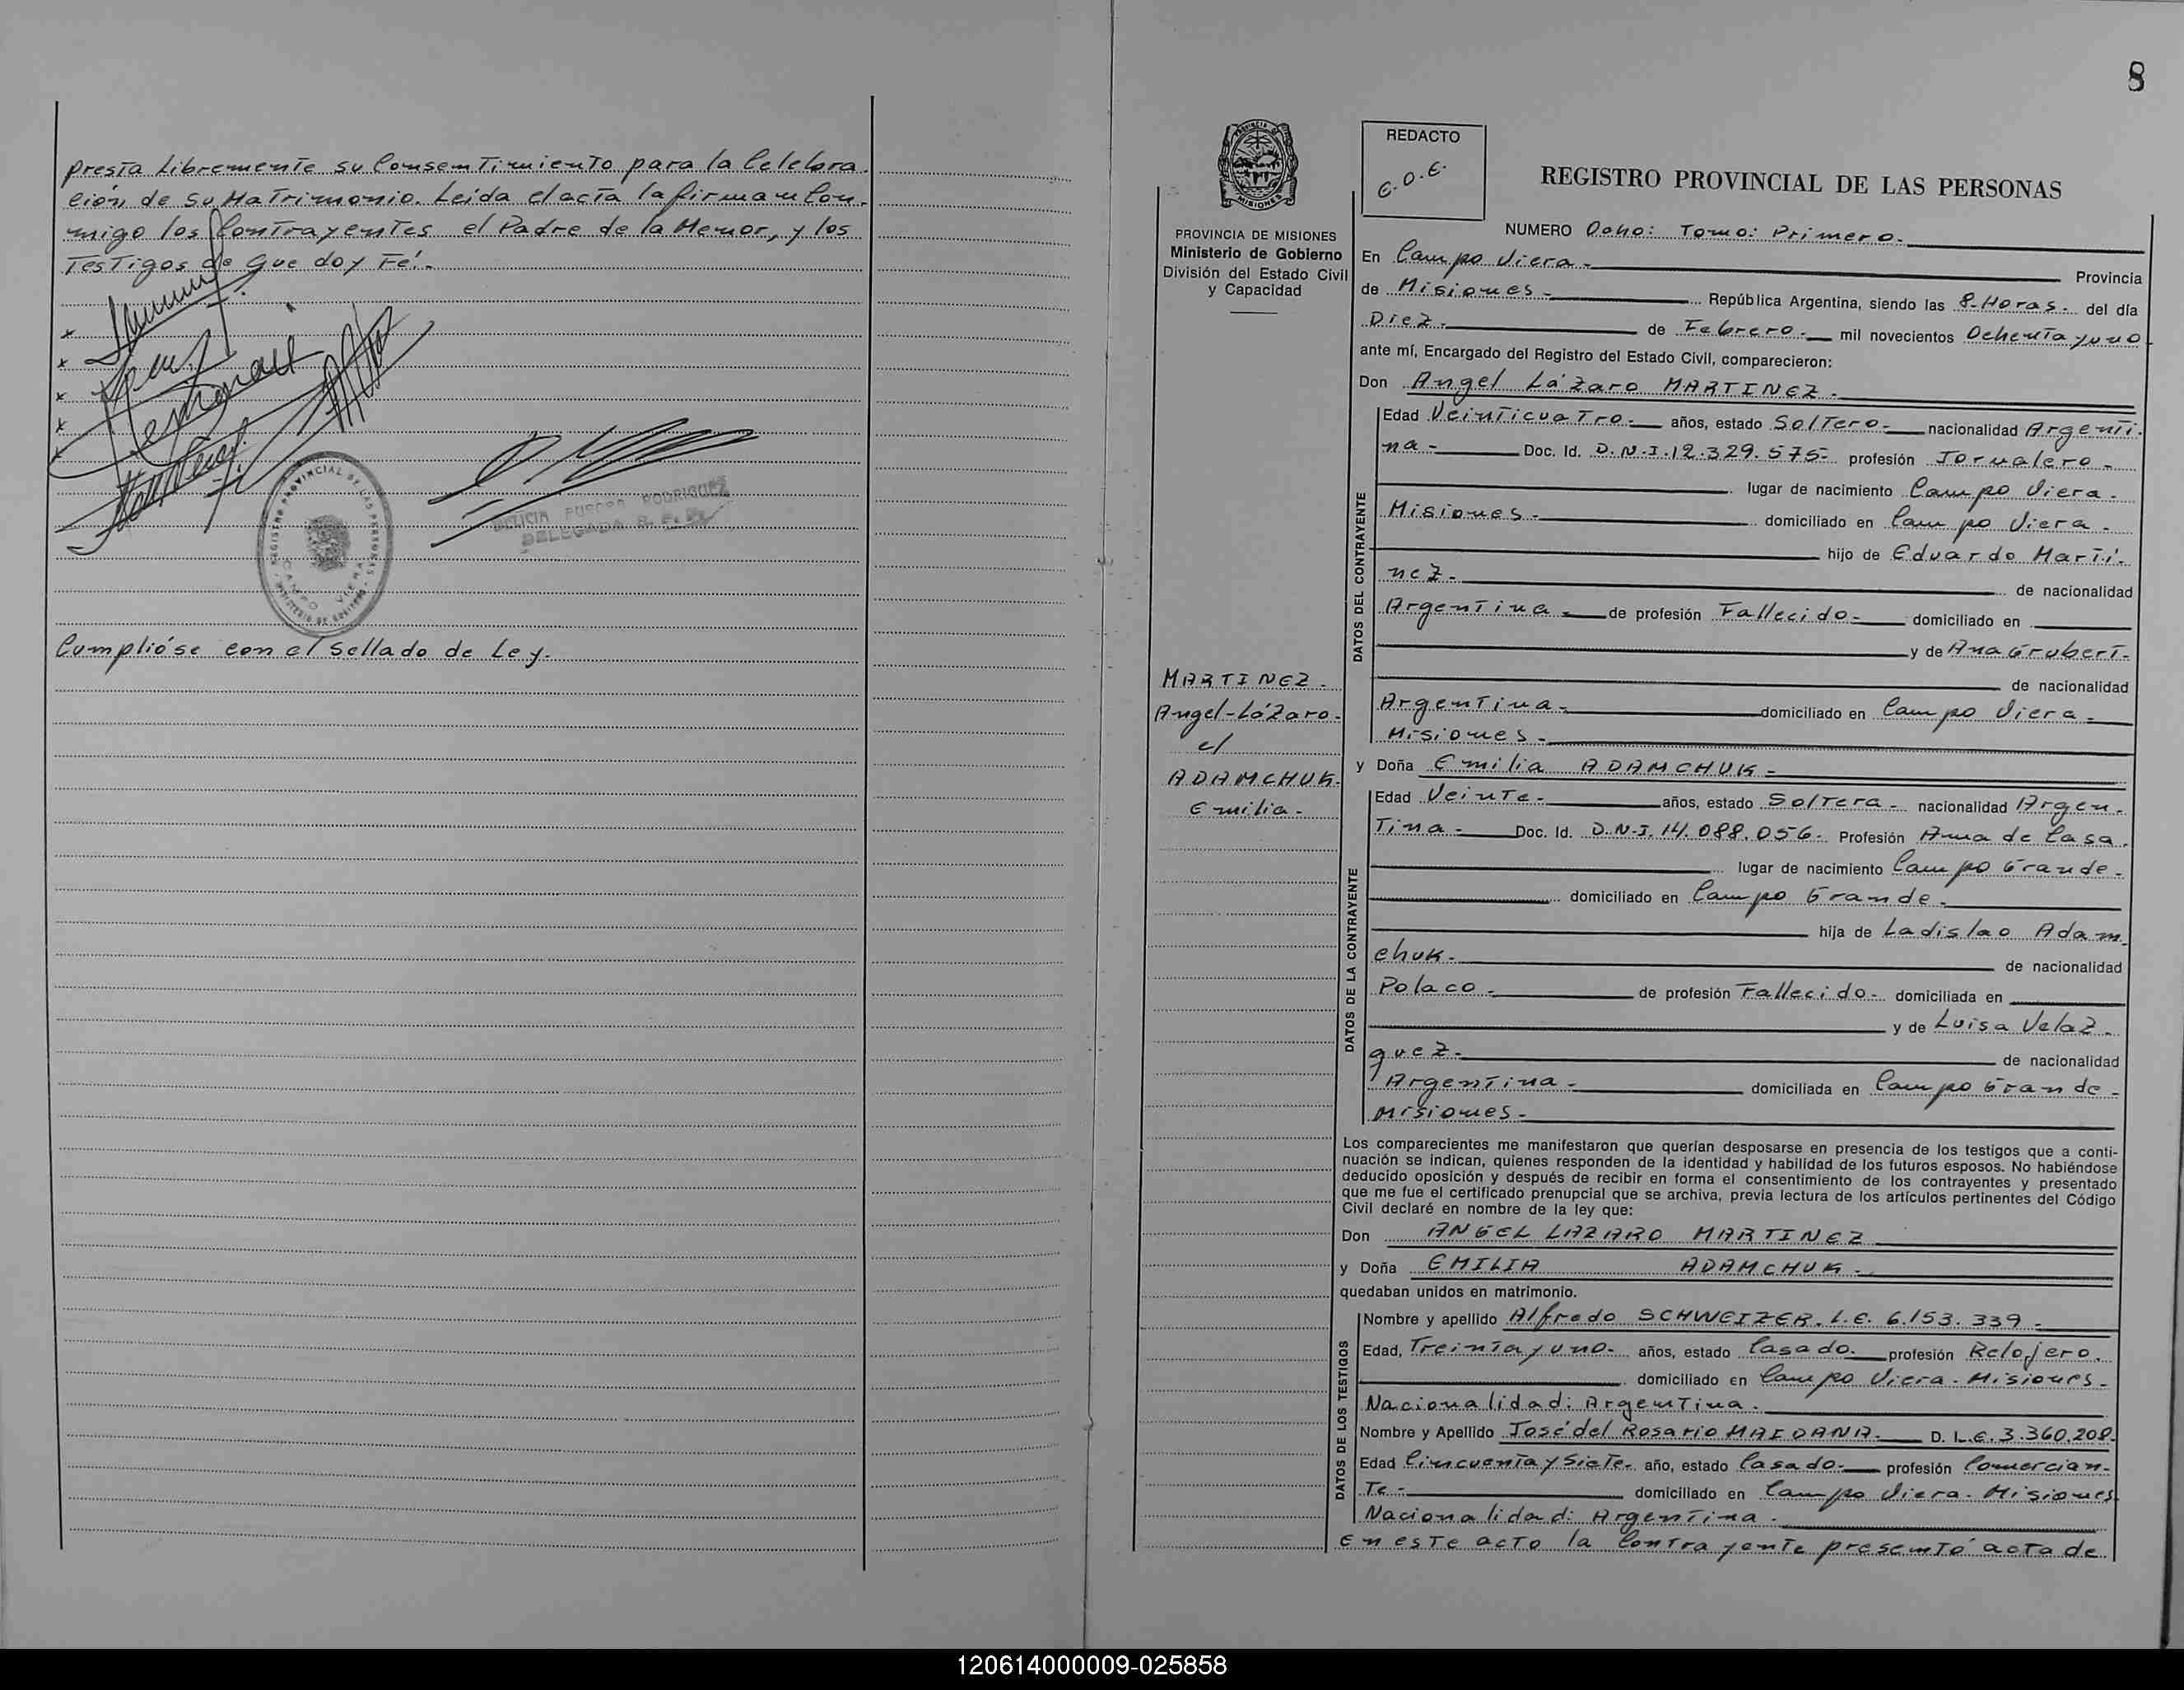 presta Libremente su Consentimiento para la Celebra
ción de su Matrimonio. Leída el acta la firman con
migo los Contrayentes el Padre de la Menor, y los
Testigos de que doy Fé.-
REGISTRO PROVINCIAL DE LAS PERSONAS
CAMPO VIERA
RODRIGUEZ
DELEGADA R. P. P.
Cumplióse con el Sellado de Ley.
8
REDACTO
REGISTRO PROVINCIAL DE LAS PERSONAS
PROVINCIA DE MISIONES
Ministerio de Gobierno
División del Estado Civil
y Capacidad
NUMERO Ocho: Tomo: Primero.-
En Campo Viera.- Provincia
de Misiones.- República Argentina, siendo las 8.Horas.- del día
Diez.- de Febrero.- mil novecientos Ochenta y uno
ante mí, Encargado del Registro del Estado Civil, comparecieron:
Don Angel Lázaro MARTINEZ.-
DATOS DEL CONTRAYENTE
Edad Veinticuatro.- años, estado Soltero.- nacionalidad Argenti-
na.- Doc. Id. D.N.I.12.329.575- profesión Jornalero.-
lugar de nacimiento Campo Viera.-
Misiones.- domiciliado en Campo Viera.-
hijo de Eduardo Martí-
nez.- de nacionalidad
Argentina.- de profesión Fallecido.- domiciliado en
y de Ana Grubert.-
de nacionalidad
Argentina.- domiciliado en Campo Viera.-
Misiones.-
MARTINEZ.-
Angel-Lázaro.-
c/
ADAMCHUK.
Emilia.-
y Doña Emilia ADAMCHUK.-
DATOS DE LA CONTRAYENTE
Edad Veinte.- años, estado Soltera.- nacionalidad Argen-
Tina.- Doc. Id. D.N.I. 14.088.056.- Profesión Ama de Casa.
lugar de nacimiento Campo Grande.-
domiciliado en Campo Grande.-
hija de Ladislao Adam
chuk.- de nacionalidad
Polaco.- de profesión Fallecido.- domiciliada en
y de Luisa Velaz-
quez.- de nacionalidad
Argentina.- domiciliada en Campo Grande-
Misiones.-
Los comparecientes me manifestaron que querían desposarse en presencia de los testigos que a conti-
nuación se indican, quienes responden de la identidad y habilidad de los futuros esposos. No habiéndose
deducido oposición y después de recibir en forma el consentimiento de los contrayentes y presentado
que me fue el certificado prenupcial que se archiva, previa lectura de los artículos pertinentes del Código
Civil declaré en nombre de la ley que:
Don ANGEL LAZARO MARTINEZ
y Doña EMILIA ADAMCHUK.-
quedaban unidos en matrimonio.
DATOS DE LOS TESTIGOS
Nombre y apellido Alfredo SCHWEIZER.L.E. 6.153.339.-
Edad, Treinta y uno.- años, estado Casado.- profesión Relojero.
domiciliado en Campo Viera. Misiones.-
Nacionalidad: Argentina.-
Nombre y Apellido José del Rosario MAIDANA.- D. L.E. 3.360.208.
Edad Cincuenta y Siete.- año, estado Casado.- profesión Comercian-
Te.- domiciliado en Campo Viera. Misiones
Nacionalidad: Argentina.-
En este acto la Contrayente presentó acta de
120614000009-025858